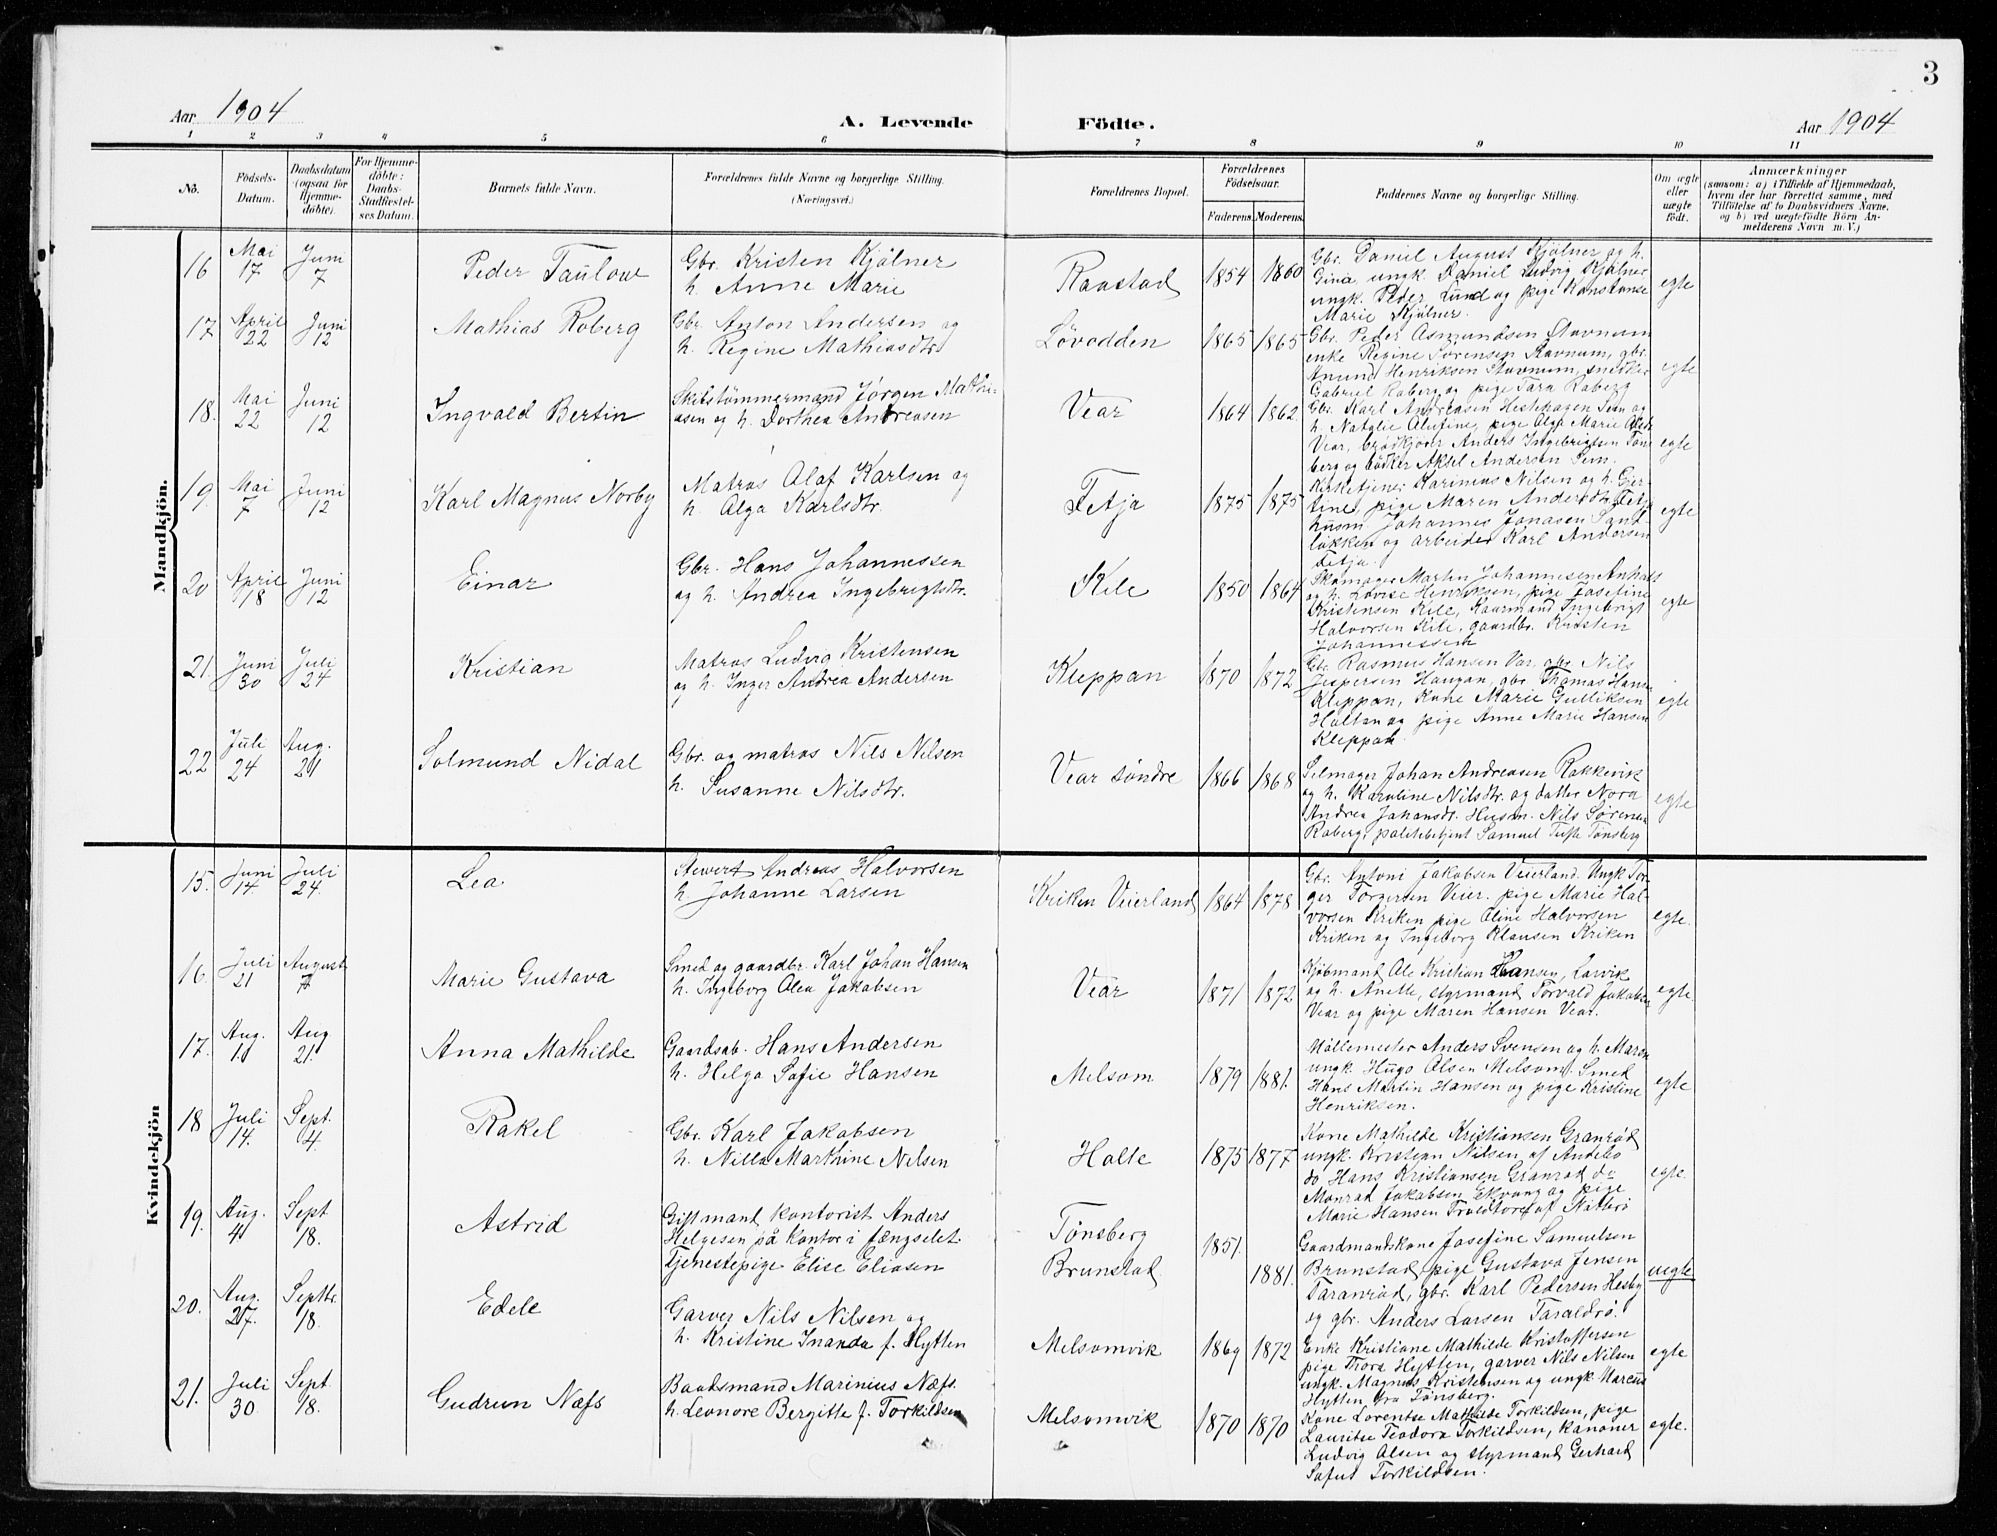 3
Aar 1904
A. Levende Födte.
Aar 1904
1 2 3 4 5 6 7 8 9 10 11
No.
Födsels-
Datum.
Daabsdatum
(ogsaa for
Hjemme-
döbte).
For Hjemme-
döbte:
Daabs-
Stadfæstel-
ses Datum.
Barnets fulde Navn.
Forældrenes fulde Navne og borgerlige Stilling.
(Næringsvei.)
Forældrenes Bopæl.
Forældrenes
Födselsaar.
Faderens. Moderens.
Faddernes Navne og borgerlige Stilling.
Om ægte
eller
uægte
födt.
Anmærkninger
(saasom: a) i Tilfælde af Hjemmedaab,
hvem der har forrettet samme, med
Tilföielse af to Daabsvidners Navne,
og b) ved uægtefödte Börn An-
melderens Navn m. V.)
Mandkjön.
16 Mai 17 Juni 7 Peder Taulow
Gbr. Kristen Kjølner
h. Anne Marie
Raastad 1854 1860
Gbr. Daniel August Kjølner og h.
Gina ungk. Daniel Ludvig Kjølner
ungk. Peder Lund og pige Konstanse
Marie Kjølner.
egte
17 April 22 Juni 12 Mathias Roberg
Gbr. Anton Andersen og
h. Regine Mathiasdtr.
Løvodden 1865 1865
Gbr. Peder Asmundsen Stavnum
enke Regine Sørensen Stavnum, gbr.
Anund Henriksen Stavnum, snedker
Gabriel Roberg og pige Tara Roberg
egte
18. Mai 22 Juni 12 Ingvald Bertin
Skibstömmermand Jörgen Mathi-
asen og h. Dorthea Andreasen
Vear 1864 1862
Gbr. Karl Andreasen Hestehagen Sem og
h. Natalie Alufine, pige Olga Marie
Vear, brødkjører Anders Ingebrigtsen Töns-
berg og bødker Aksel Andersen Sem.
egte
19. Mai 7 Juni 12 Karl Magnus Norby
Matros Olaf Karlsen og
h. Olga Karlsdtr.
Tetja 1875 1875
Kirketjener Karinius Nilsen og h. Gjer-
tine, pige Maren Andersdtr. Tetja
husm. Johannes Jonasen Sand-
løkken og arbeider Karl Andersen
Tetja.
egte
20 April 18 Juni 12 Einar
Gbr. Hans Johannessen
og h. Andrea Ingebrigtsdtr.
Kile 1850 1864
Skomager Martin Johannesen
og h. Lovise Henriksen, pige Josefine
Kristensen Kile, Kaarmand Ingebrigt
Halvorsen Kile, gaardbr. Kristen
Johannessen
egte
21. Juni 30 Juli 24 Kristian
Matros Ludvig Kristensen
og h. Inger Andrea Andersen
Kleppan 1870 1872
Gbr. Rasmus Hansen Var, gbr. Nils
Jespersen Haugan, gbr. Thomas Hansen
Kleppan, Kone Marie Gulliksen
Holtan og pige Anne Marie Hansen
Kleppan.
egte
22 Juli 24 Aug. 21 Solmund Nidal
Gbr. og matros Nils Nilsen
h. Susanne Nilsdtr.
Vear søndre 1866 1868
Selmager Johan Andreasen Rakkevik
og h. Karoline Nilsdtr. og datter Nora
Andrea Johansdtr. Husm. Nils Sørensen
Roberg, politibetjent Samuel Tufte Tønsberg
egte
Kvindekjön
15. Juni 14 Juli 24. Lea.
Stewert Andreas Halvorsen
h. Johanne Larsen
Kriken Veierland 1864 1878
Gbr. Antoni Jakobsen Veierland. Ungk Tor-
ger Torgersen Veier. pige Marie Hal-
vorsen Kriken pige Oline Halvorsen
Kriken og Ingeborg Klausen Kriken
egte.
16. Juli 21 August 7 Marie Gustava
Smed og gaardbr. Karl Johan Hansen
h. Ingeborg Olea Jakobsen
Vear 1871 1872
Kjøbmand Ole Kristian Hansen, Larvik
og h. Anette, styrmand Torvald Jakobsen
Vear og pige Maren Hansen Vear.
egte.
17. Aug. 1. Aug 21. Anna Mathilde
Gaardsab. Hans Andersen
h. Helga Sofie Hansen
Melsom 1879 1881.
Møllemester Anders Svensen og h. Maren
ungk. Hugo Olsen Melsom. Smed
Hans Martin Hansen og pige Kristine
Henriksen.
egte
18 Juli 14. Sept. 4. Rakel
Gbr. Karl Jakobsen
h. Nilla Marthine Nilsen
Holte 1875 1877
Kone Mathilde Kristiansen Granrød
ungk. Kristian Nilsen af Andebo
do Hans Kristiansen Granrød do
Monrad Jakobsen Ekvang og pige
Marie Hansen af Nøtterö
egte.
19. Aug. 4 Sept 18. Astrid
Gift mand kontorist Anders
Helgesen på kontor i fængselet
Tjenestepige Elise Eliasen
Tønsberg 1851.
Brunstad 1881.
Gaardmandskone Josefine Samuelsen
Brunstad, pige Gustava Jensen
Taranrød, gbr. Karl Pedersen Hesby
og gbr. Anders Larsen Taraldrø.
uegte
20. Aug. 27. Septbr. 18. Edele
Garver Nils Nilsen og
h. Kristine Inanda f. Hytten
Melsomvik 1869 1872
Enke Kristiane Mathilde Kristoffersen
pige Thora Hytten, garver Nils Nilsen
ungk. Magnus Kristensen og ungk Marcus
Hytten fra Tønsberg.
egte
21. Juli 30. Sept. 18. Gudrun Næfs
Baadsmand Marinius Næfs.
h. Leonore Bergitte f. Torkildsen
Melsomvik 1870 1870
Kone Lorentse Mathilde Torkildsen, pige
Lauritse Teodora Torkildsen, kanoner
Ludvig Olsen og styrmand Gerhard
Sofus Torkildsen.
egte.